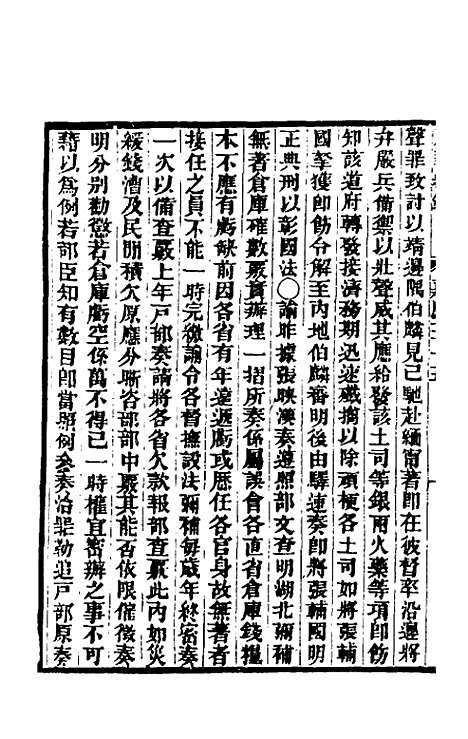 聲罪致討以靖邊隅伯麟見已馳赴緬甯著即在彼督率沿邊將
弁嚴兵備禦以壯聲威其應給發該土司等銀兩火藥等項即飭
知該道府轉發接濟務期迅速殲擒以除頑梗各土司如將張輔
國拏獲即飭令解至內地伯麟審明後由驛速奏即將張輔國明
正典刑以彰國法○諭昨據張映漢奏遵照部文查明湖北彌補
無著倉庫確數嚴實辦理一摺所奏係屬誤會各直省倉庫錢糧
本不應有虧缺前因各省有年遠遞虧或歷任各官身故無著者
接任之員不能一時完繳諭令各督撫設法彌補每歲年終密奏
一次以備查覈上年戶部奏請將各省欠款報部查覈此內如災
緩錢漕及民間積欠原應分晰咨部部中覈其能否依限催徵奏
明分別勸懲若倉庫虧空係萬不得已一時權宜密辦之事不可
藉以為例若部臣知有數目即當照例參奏治罪勒追戶部原奏